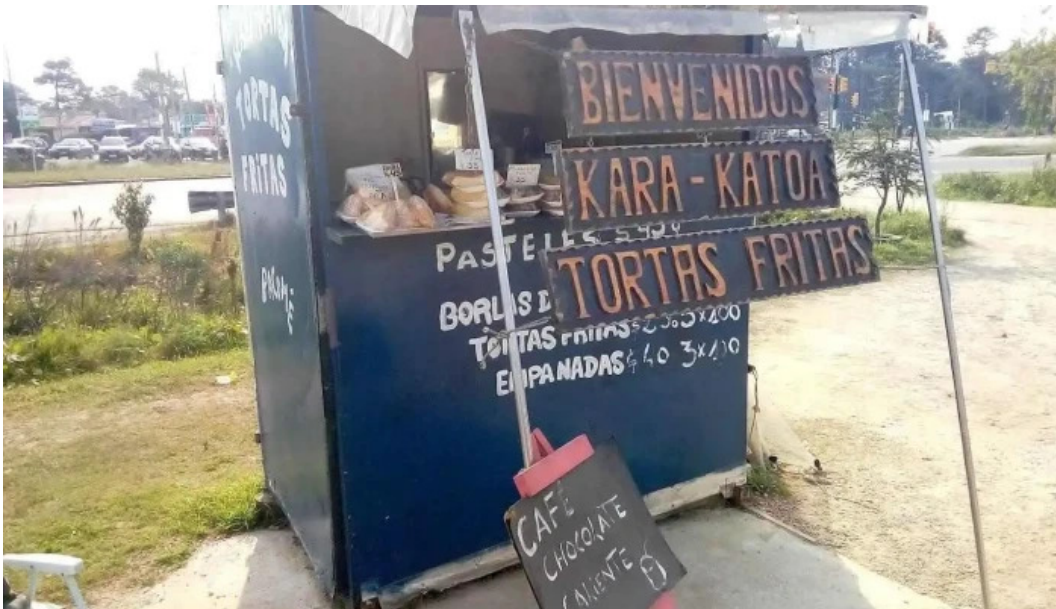 TORTAS
FRITAS
BIENVENIDOS
KARA-KATOA
TORTAS FRITAS
PASTELES
BORLAS
TORTAS FRITAS 3x100
EMPANADAS $40 3x100
CAFE
CHOCOLATE
CALIENTE